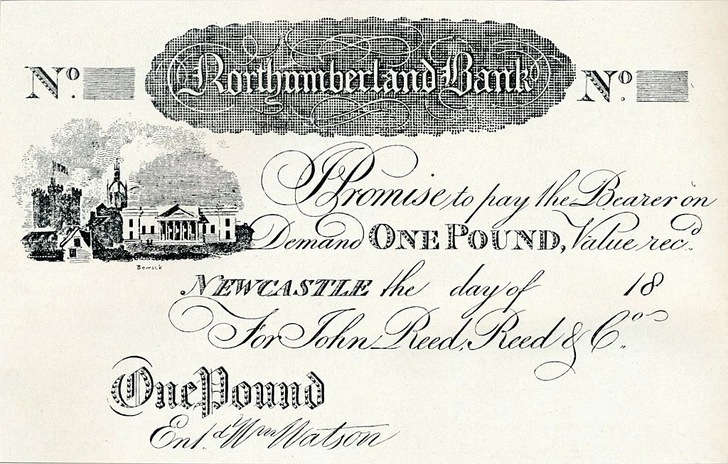 Northumberland Bank
Nº Nº
I Promise to pay the Bearer on
Demand ONE POUND, Value recd.
Bewick
NEWCASTLE the day of 18
For John Reed, Reed & Co.
One Pound
Entd. Wm Watson